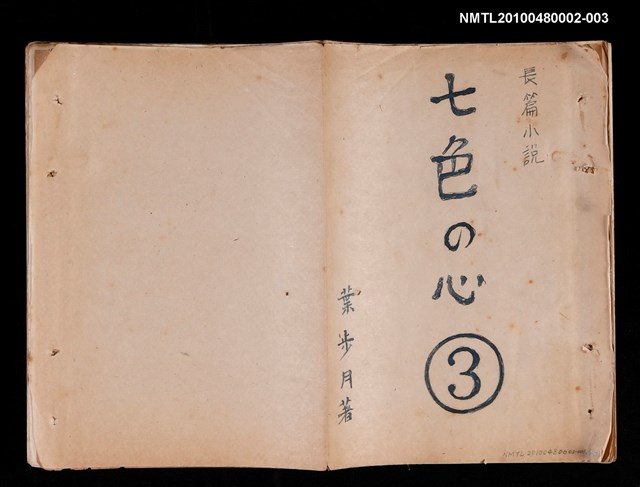 NMTL20100480002-003
長篇小説
七色の心
③
葉步月著